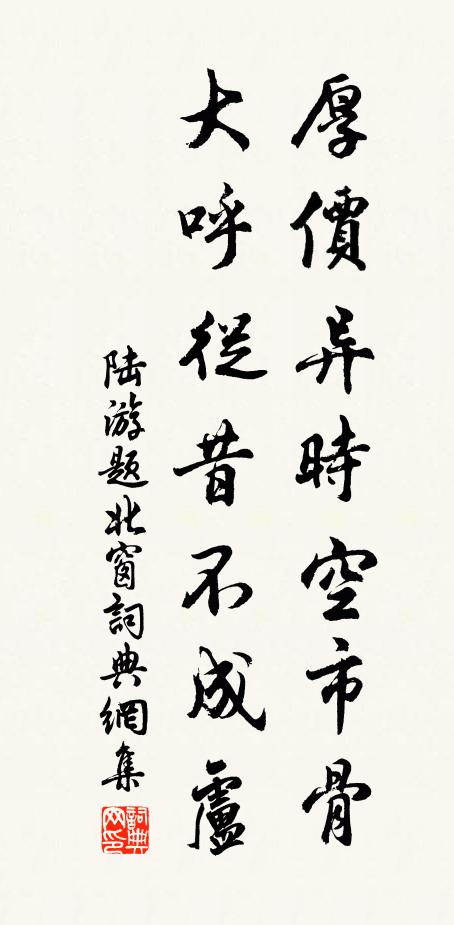 厚價异時空市骨
大呼從昔不成盧
陆游题北窗詞典網集
詞典网印